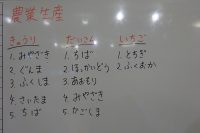 農業生産
きゅうり
1. みやざき
2. ぐんま
3. ふくしま
4. さいたま
5. ちば
だいこん
1. ちば
2. ほっかいどう
3. あおもり
4. みやざき
5. かごしま
いちご
1. とちぎ
2. ふくおか